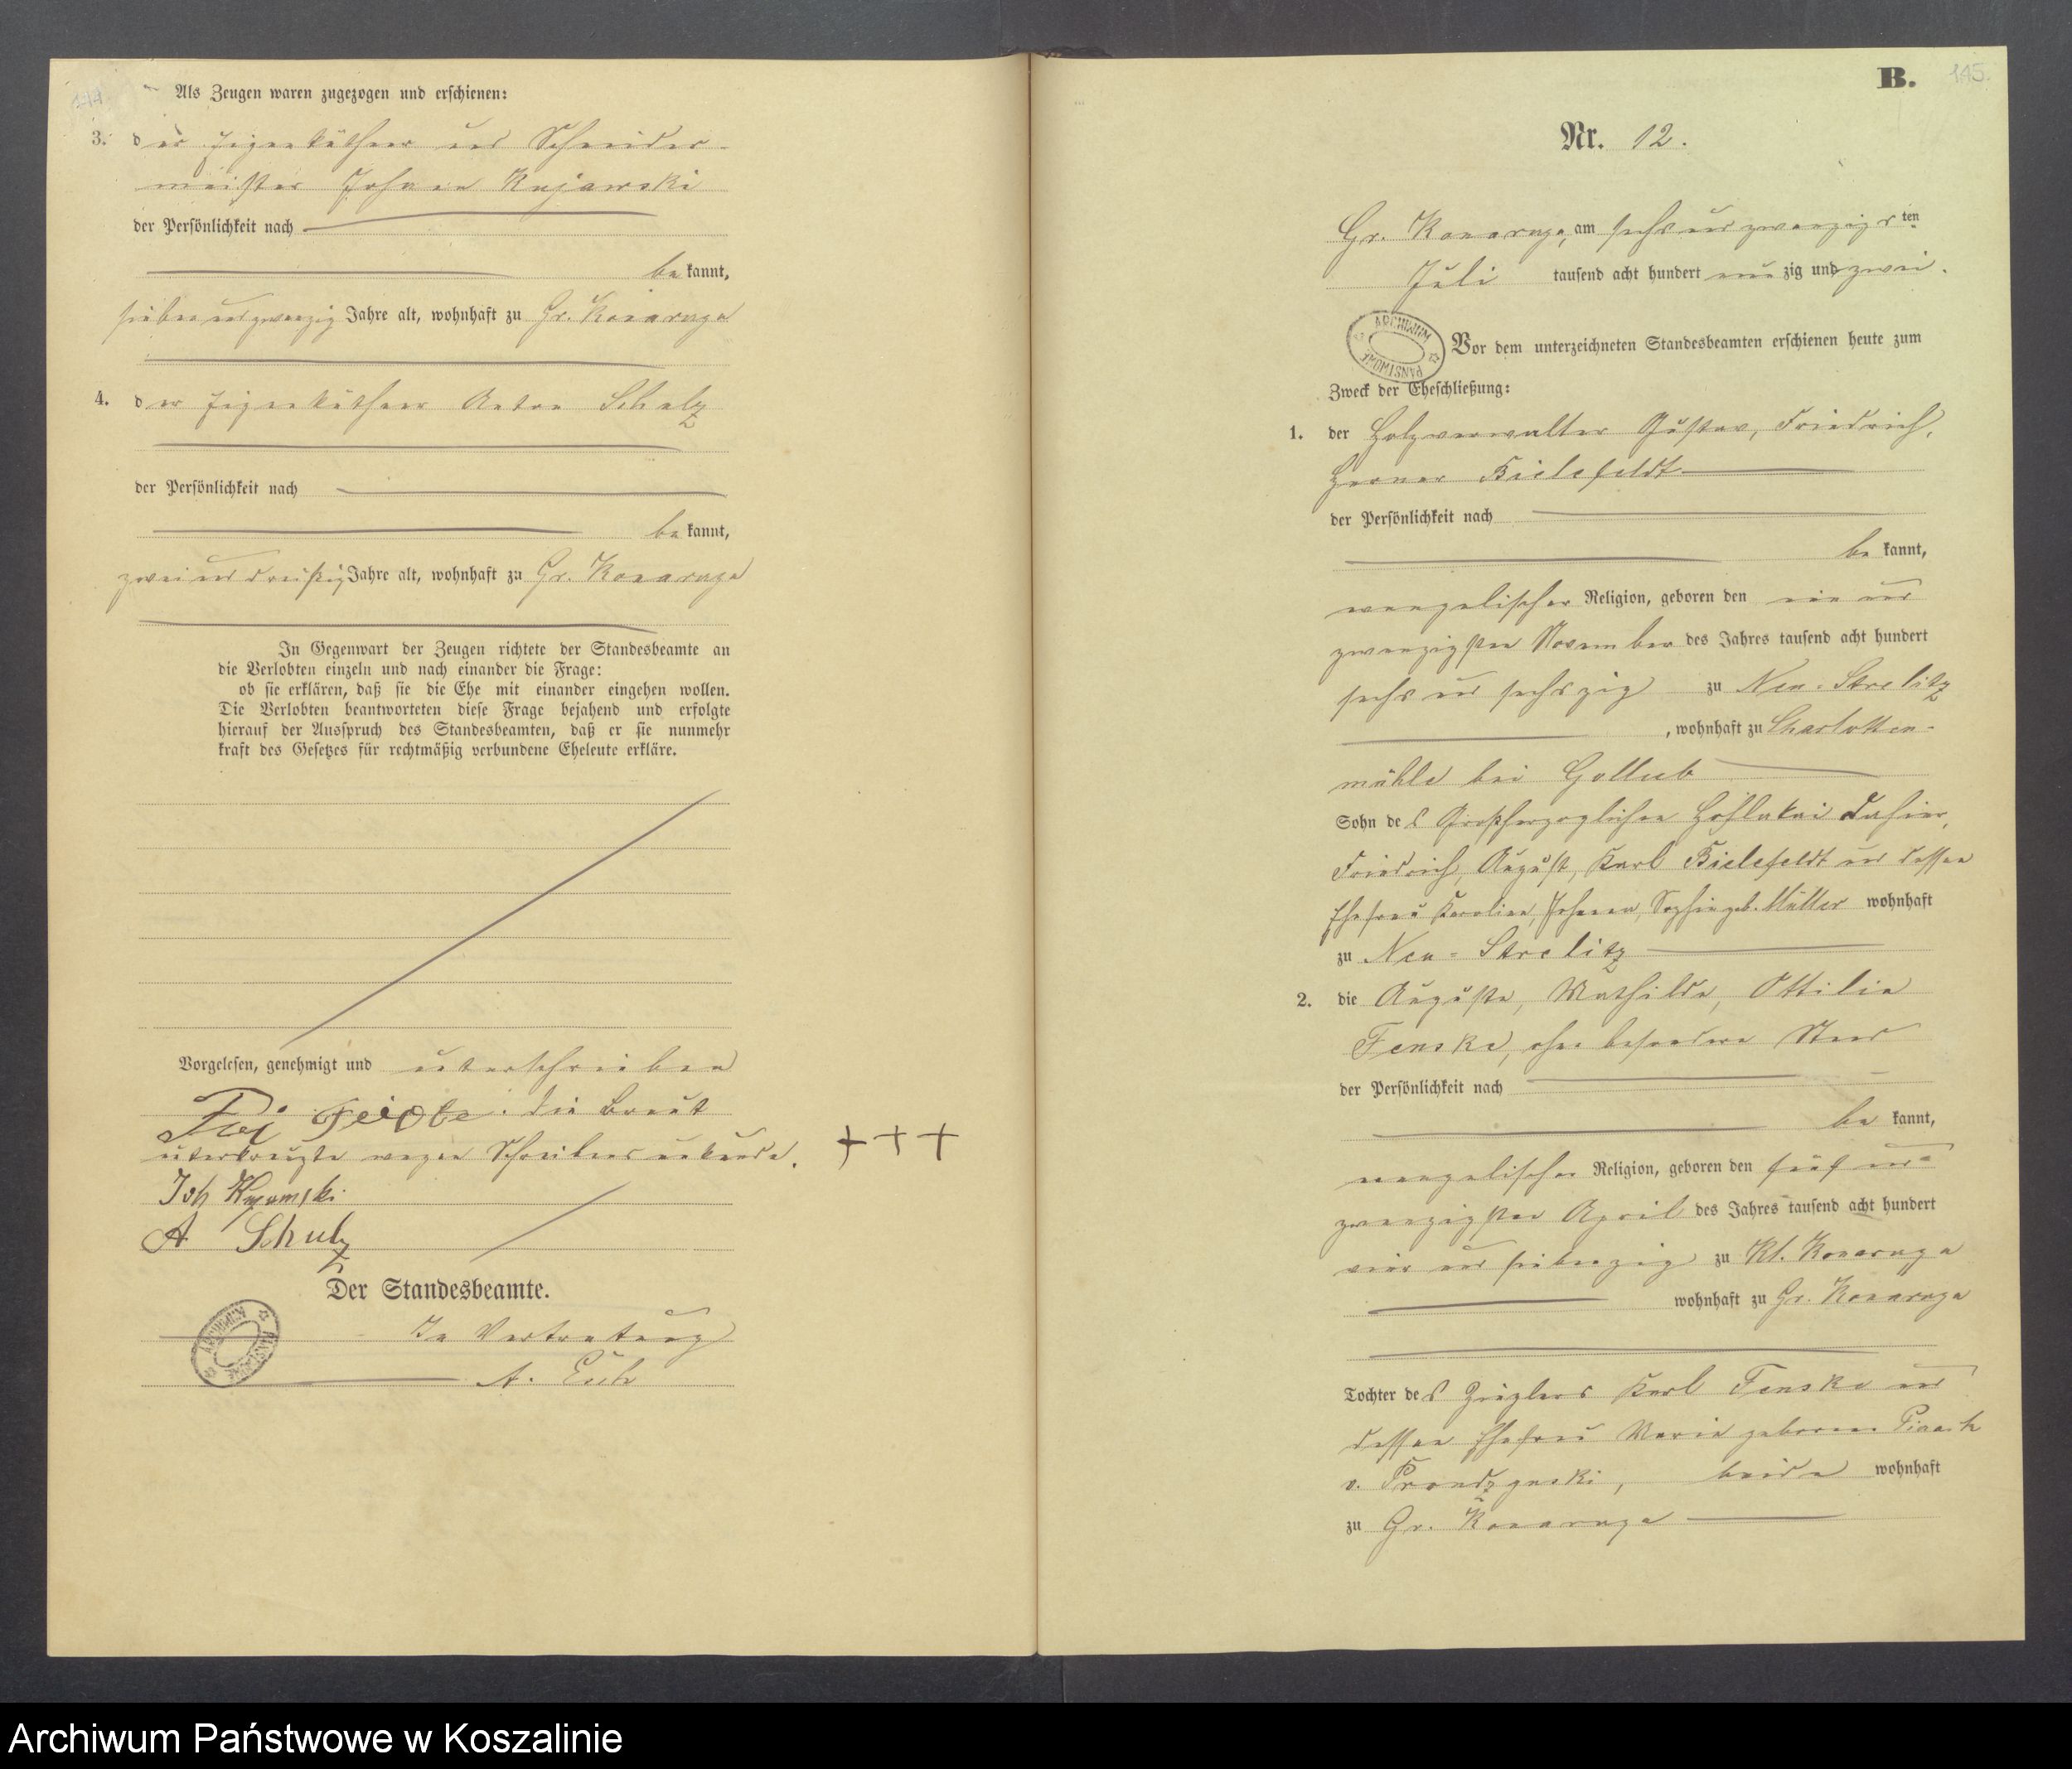 144
Als Zeugen waren zugezogen und erschienen:
3. der Eigenkäthner und Schneider-
meister Johann Kujawski
der Persönlichkeit nach
bekannt,
sieben und zwanzig Jahre alt, wohnhaft zu Gr. Konarczyn
4. der Eigenkäthner Anton Schulz
der Persönlichkeit nach
bekannt,
zwei und dreißig Jahre alt, wohnhaft zu Gr. Konarczyn
In Gegenwart der Zeugen richtete der Standesbeamte an
die Verlobten einzeln und nach einander die Frage:
ob sie erklären, daß sie die Ehe mit einander eingehen wollen.
Die Verlobten beantworteten diese Frage bejahend und erfolgte
hierauf der Ausspruch des Standesbeamten, daß er sie nunmehr
kraft des Gesetzes für rechtmäßig verbundene Eheleute erkläre.
Vorgelesen, genehmigt und unterschrieben
die Braut
unterkreuzte wegen Schreibensunkunde. +++
Joh Kujawski
A Schulz
Der Standesbeamte.
In Vertretung
A.
B. 145.
Nr. 12.
Gr. Konarczyn, am sechs und zwanzigsten
Juli tausend acht hundert neunzig und zwei.
ARCHIWUM PAŃSTWOWE
Vor dem unterzeichneten Standesbeamten erschienen heute zum
Zweck der Eheschließung:
1. der Holzverwalter Gustav, Friedrich,
Werner Bielefeldt
der Persönlichkeit nach
bekannt,
evangelischer Religion, geboren den ein und
zwanzigsten November des Jahres tausend acht hundert
sechs und sechszig zu Neu-Strelitz
, wohnhaft zu Charlotten-
mühle bei Gollub
Sohn des Großherzoglichen Hoflakai
Friedrich, August, Karl Bielefeldt und dessen
Ehefrau Karoline, Johanna, Sophie geb. Müller wohnhaft
zu Neu-Strelitz
2. die Auguste, Mathilde, Ottilie
Fenske, ohne besonderen Stand
der Persönlichkeit nach
bekannt,
evangelischer Religion, geboren den fünf und
zwanzigsten April des Jahres tausend acht hundert
vier und siebenzig zu Kl. Konarczyn
wohnhaft zu Gr. Konarczyn
Tochter des Zieglers Karl Fenske und
dessen Ehefrau Marie geborene
v. Prondzynski, beide wohnhaft
zu Gr. Konarczyn
Archiwum Państwowe w Koszalinie